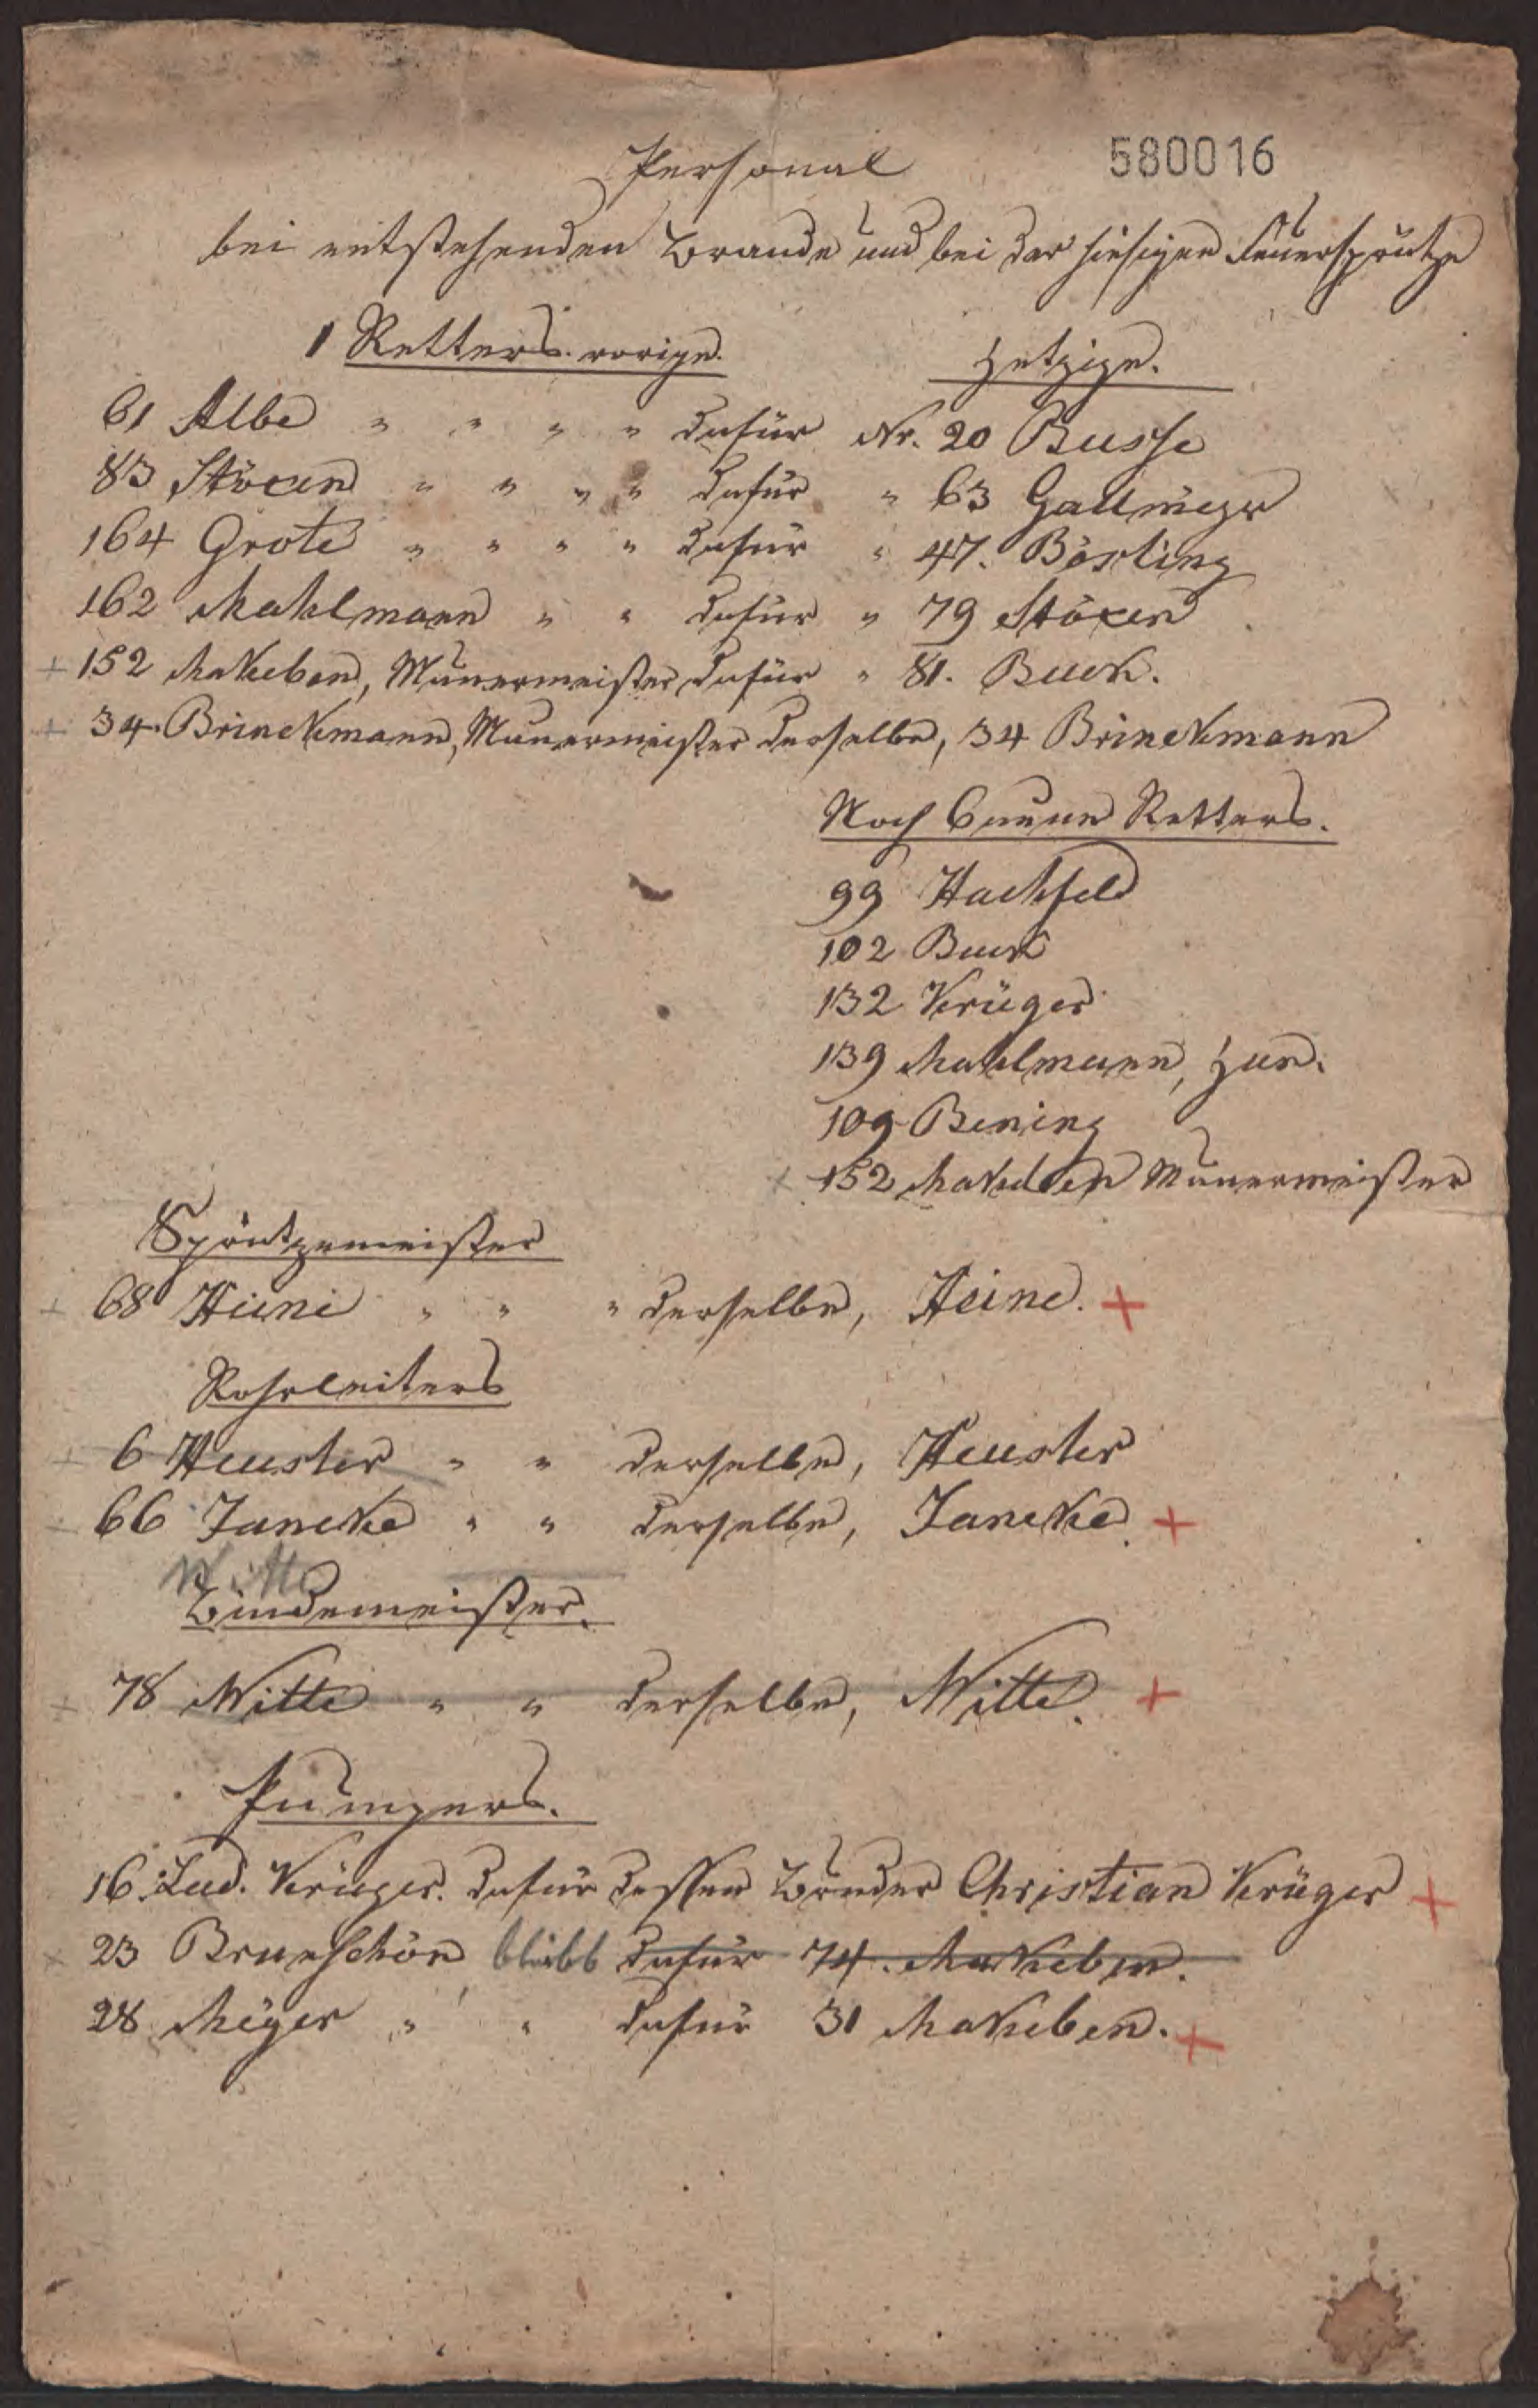 Personal 580016
bei entstehenden Brande und bei der hiesigen Feuersprütze
1 Retters vorige. Jetzige.
61 Albe " " " " dafür Nr. 20 Busse
83 Stöxen " " " " dafür " 63 Gallmeyer
164 Grote " " " " dafür " 47. Bösling
162 Mahlmann " " dafür " 79 Stöxen
+ 152 Makeben, Mauermeister dafür " 81. Buck.
+ 34. Brinckmann, Mauermeister derselbe, 34 Brinckmann
Noch 6 neue Retters.
99 Hachfeld
102 Buck
132 Krüger
139 Mahlmann, Jun.
109 Bening
+ 152 Makeben Mauermeister
Sprützemeister
+ 68 Heine " " " derselbe, Heine. +
Rohrleiters
+ 6 Heuster " " derselbe, Heuster
66 Janeke " " derselbe, Janeke. +
Witte
Bindemeister.
+ 78 Witte " " derselbe, Witte. +
Pumpers.
16. Lud. Krüger. dafür dessen Bruder Christian Krüger +
+ 23 Brunschön bleibt dafür 74. Makeben.
28 Meyer " " dafür 31 Makeben. +